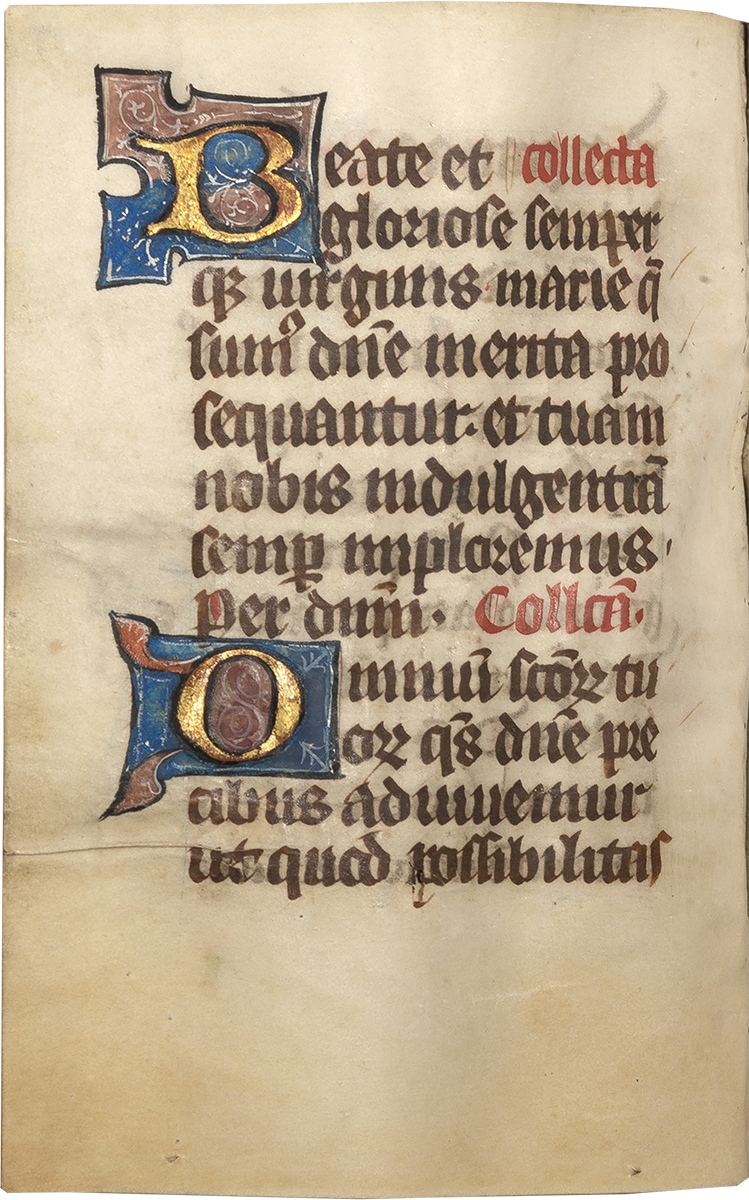 Beate et collecta
gloriose semper
qꝫ uirginis marie q̄
sumꝰ dn̄e merita pro
sequantur. et tuam
nobis indulgentiā
semꝑ imploremus.
Per dum̄. Collctā.
Omniū scōꝝ tu
oꝝ q̄s dn̄e pre
cibus adiuuemur
ut quod possibilitas